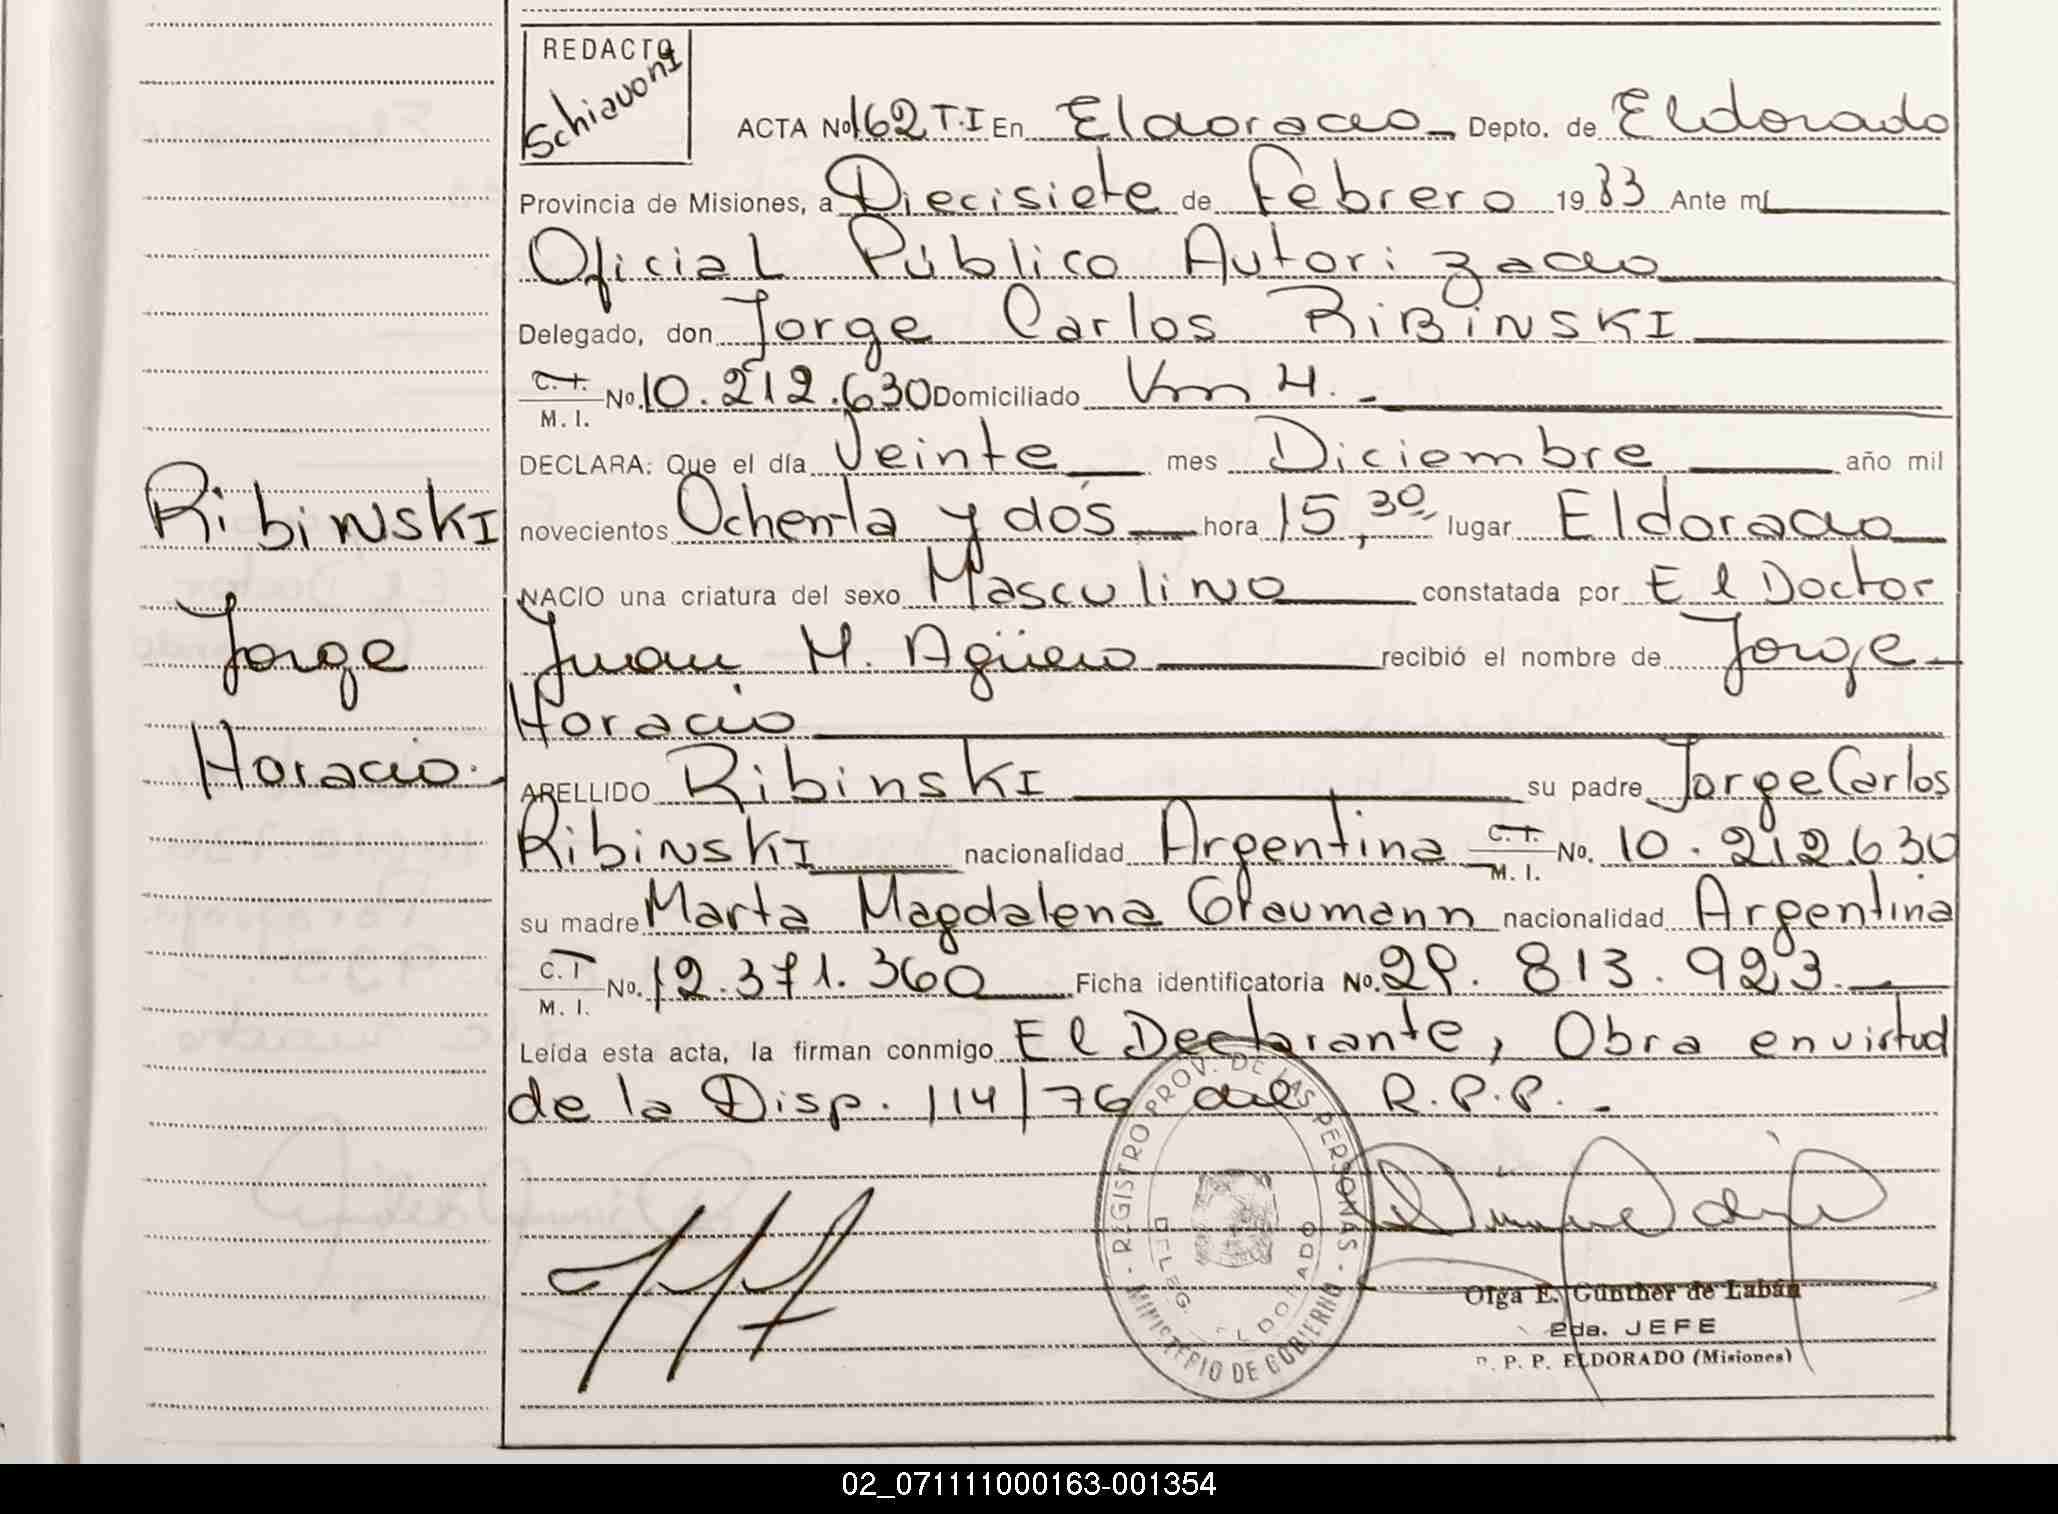 REDACTO
Schiavoni
ACTA No 162 T.I En Eldorado Depto. de Eldorado
Provincia de Misiones, a Diecisiete de Febrero 1983 Ante mí
Oficial Público Autorizado
Delegado, don Jorge Carlos RIBINSKI
C.I. M. I. No. 10.212.630 Domiciliado Km 4.-
DECLARA: Que el día Veinte mes Diciembre año mil
novecientos Ochenta y dos hora 15,30 lugar Eldorado
NACIO una criatura del sexo Masculino constatada por El Doctor
Juan M. Agüero recibió el nombre de Jorge
Horacio
APELLIDO Ribinski su padre Jorge Carlos
Ribinski nacionalidad Argentina C.I. M. I. No. 10.212.630
su madre Marta Magdalena Graumann nacionalidad Argentina
C.I M. I. No. 12.371.360 Ficha identificatoria No. 29.813.923.
Leída esta acta, la firman conmigo El Declarante, Obra en virtud
de la Disp. 114/76 del R.P.P.-
Ribinski
Jorge
Horacio.-
REGISTRO PROV. DE LAS PERSONAS
MINISTERIO DE GOBIERNO
DELEG. ELDORADO
Olga E. Günther de Labán
2da. JEFE
R. P. P. ELDORADO (Misiones)
02_071111000163-001354